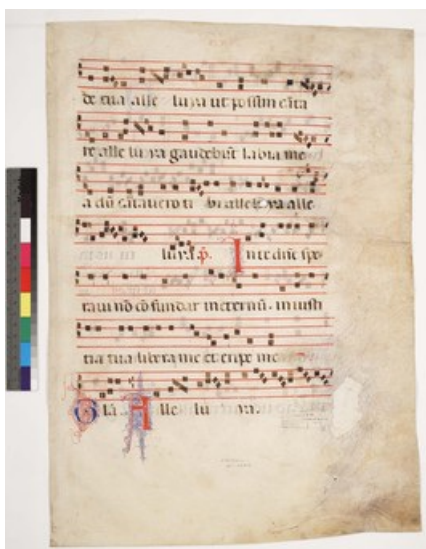 de tua alle lu ya ut possim cāta
re alle lu ya gaudebūt labia me
a dū cātavero ti bi alle lu ya alle
lu ya p̄. In te dn̄e spe
ravi nō cō fundar in eternū. in iusti
tia tua libera me et eripe me
G la A lle lu ya.